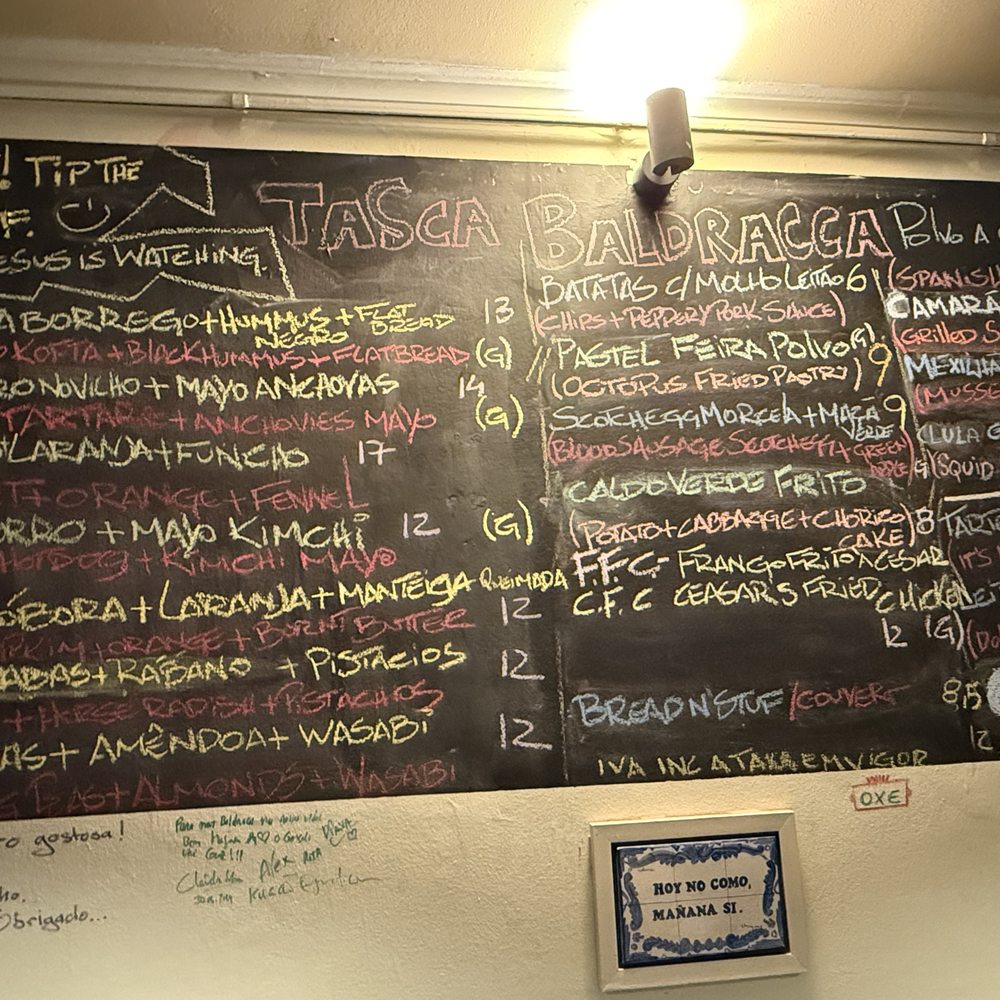 ! TIP THE
F.
ESUS IS WATCHING.
TASCA BALDRACCA
A BORREGO + HUMMUS + FLAT BREAD 13
NEGRO
KOFTA + BLACK HUMMUS + FLATBREAD (G)
RO NOVILHO + MAYO ANCHOVAS 14
TARTARE + ANCHOVIES MAYO (G)
LARANJA + FUNCHO 17
+ ORANGE + FENNEL
ORRO + MAYO KIMCHI 12 (G)
HOTDOG + KIMCHI MAYO
ÓBORA + LARANJA + MANTEIGA QUEIMADA
12
PKIM + ORANGE + BURNT BUTTER
ADAS + RÁBANO + PISTACIOS 12
+ HORSE RADISH + PISTACHOS
AS + AMÊNDOA + WASABI 12
+ ALMONDS + WASABI
BATATAS C/ MOLHO LEITÃO 6
(CHIPS + PEPPERY PORK SAUCE)
// PASTEL FEIRA POLVO (G) 9
(OCTOPUS FRIED PASTRY)
SCOTCHEGG MORCELA + MAÇA VERDE 9
(BLOOD SAUSAGE SCOTCHEGG + GREEN APPLE)
CALDO VERDE FRITO
(POTATO + CABBAGE + CHORIÇO CAKE) 8
F.F.C - FRANGO FRITO CESAR
C.F.C CEASAR,S FRIED CHICKEN
12 (G)
BREAD N' STUF / COUVERT 8,5
IVA INC A TAXA EM VIGOR
POLVO A
(SPANISH
CAMARA
(GRILLED S
MEXILHÃ
(MUSSE
(LULA G
G (SQUID
TART
12
OXE
ro gostosa!
ho.
Obrigado...
Alex
HOY NO COMO,
MAÑANA SI.